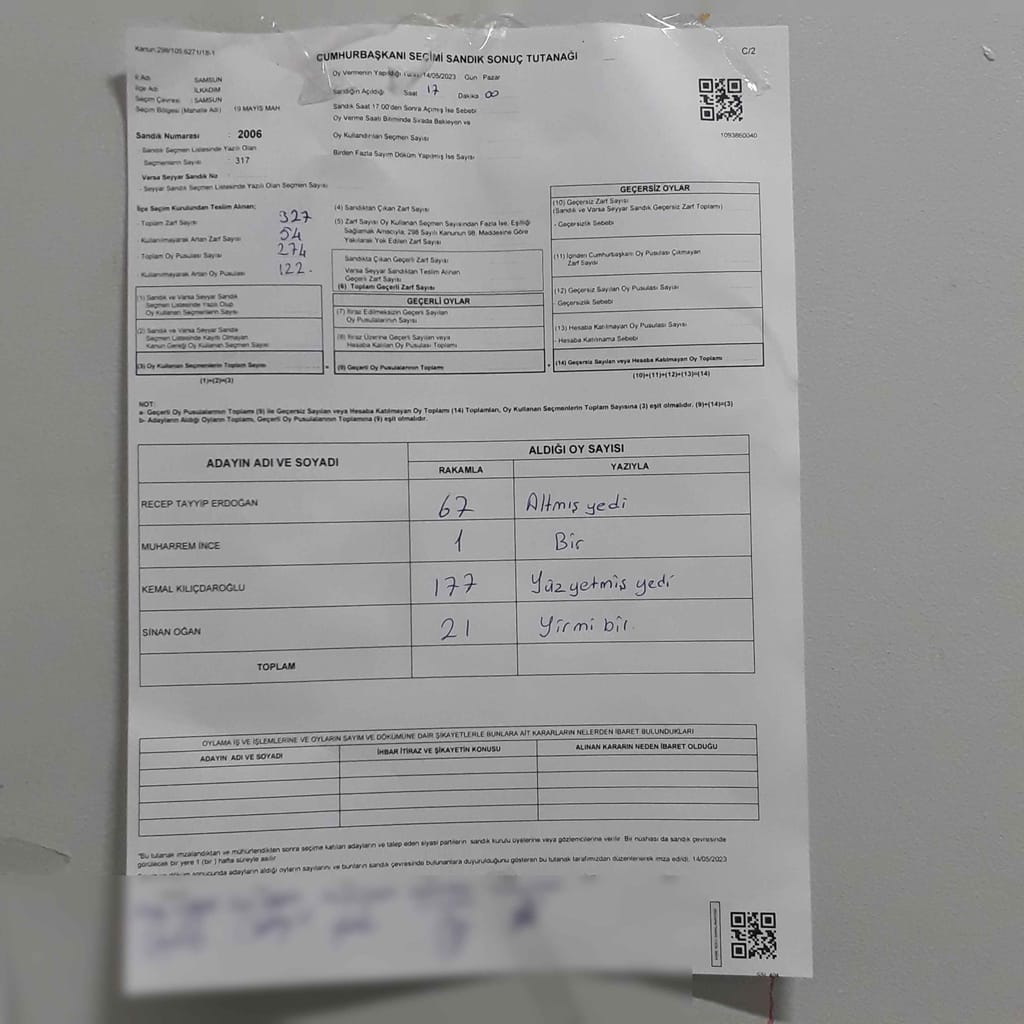 Kanun:298/105,6271/18-1
C/2
CUMHURBAŞKANI SEÇİMİ SANDIK SONUÇ TUTANAĞI
İl Adı SAMSUN
İlçe Adı İLKADIM
Seçim Çevresi : SAMSUN
Seçim Bölgesi (Mahalle Adı) 19 MAYIS MAH
Sandık Numarası : 2006
Sandık Seçmen Listesinde Yazılı Olan
Seçmenlerin Sayısı : 317
Varsa Seyyar Sandık No
- Seyyar Sandık Seçmen Listesinde Yazılı Olan Seçmen Sayısı
Oy Vermenin Yapıldığı 14/05/2023 Gün Pazar
Sandığın Açıldığı Saat 17 Dakika 00
Sandık Saat 17.00'den Sonra Açmış İse Sebebi
Oy Verme Saati Bitiminde Sırada Bekleyen ve
Oy Kullandırılan Seçmen Sayısı
Birden Fazla Sayım Döküm Yapılmış İse Sayısı
1093860040
İlçe Seçim Kurulundan Teslim Alınan;
- Toplam Zarf Sayısı 327
- Kullanılmayarak Artan Zarf Sayısı 54
- Toplam Oy Pusulası Sayısı 274
- Kullanılmayarak Artan Oy Pusulası 122.
(1) Sandık ve Varsa Seyyar Sandık
Seçmen Listesinde Yazılı Olup
Oy Kullanan Seçmenlerin Sayısı
(2) Sandık ve Varsa Seyyar Sandık
Seçmen Listesinde Kayıtlı Olmayan
Kanun Gereği Oy Kullanan Seçmen Sayısı
(3) Oy Kullanan Seçmenlerin Toplam Sayısı
(1)+(2)=(3)
(4) Sandıktan Çıkan Zarf Sayısı
(5) Zarf Sayısı Oy Kullanan Seçmen Sayısından Fazla İse, Eşitliği
Sağlamak Amacıyla; 298 Sayılı Kanunun 98. Maddesine Göre
Yakılarak Yok Edilen Zarf Sayısı
Sandıkta Çıkan Geçerli Zarf Sayısı
Varsa Seyyar Sandıktan Teslim Alınan
Geçerli Zarf Sayısı
(6) Toplam Geçerli Zarf Sayısı
GEÇERLİ OYLAR
(7) İtiraz Edilmeksizin Geçerli Sayılan
Oy Pusulalarının Sayısı
(8) İtiraz Üzerine Geçerli Sayılan veya
Hesaba Katılan Oy Pusulası Toplamı
= (9) Geçerli Oy Pusulalarının Toplamı
GEÇERSİZ OYLAR
(10) Geçersiz Zarf Sayısı
(Sandık ve Varsa Seyyar Sandık Geçersiz Zarf Toplamı)
- Geçersizlik Sebebi
(11) İçinden Cumhurbaşkanı Oy Pusulası Çıkmayan
Zarf Sayısı
(12) Geçersiz Sayılan Oy Pusulası Sayısı
Geçersizlik Sebebi
(13) Hesaba Katılmayan Oy Pusulası Sayısı
- Hesaba Katılmama Sebebi
+ (14) Geçersiz Sayılan veya Hesaba Katılmayan Oy Toplamı
(10)+(11)+(12)+(13)=(14)
NOT:
a- Geçerli Oy Pusulalarının Toplamı (9) ile Geçersiz Sayılan veya Hesaba Katılmayan Oy Toplamı (14) Toplamları, Oy Kullanan Seçmenlerin Toplam Sayısına (3) eşit olmalıdır. (9)+(14)=(3)
b- Adayların Aldığı Oyların Toplamı, Geçerli Oy Pusulalarının Toplamına (9) eşit olmalıdır.
ADAYIN ADI VE SOYADI ALDIĞI OY SAYISI
RAKAMLA YAZIYLA
RECEP TAYYİP ERDOĞAN 67 Altmış yedi
MUHARREM İNCE 1 Bir
KEMAL KILIÇDAROĞLU 177 Yüz yetmiş yedi
SİNAN OĞAN 21 Yirmi bir.
TOPLAM
OYLAMA İŞ VE İŞLEMLERİNE VE OYLARIN SAYIM VE DÖKÜMÜNE DAİR ŞİKAYETLERLE BUNLARA AİT KARARLARIN NELERDEN İBARET BULUNDUKLARI
ADAYIN ADI VE SOYADI İHBAR İTİRAZ VE ŞİKAYETİN KONUSU ALINAN KARARIN NEDEN İBARET OLDUĞU
"Bu tutanak imzalandıktan ve mühürlendikten sonra seçime katılan adayların ve talep eden siyasi partilerin sandık kurulu üyelerine veya gözlemcilerine verilir. Bir nüshası da sandık çevresinde
görülecek bir yere 1 (bir ) hafta süreyle asılır
sonucunda adayların aldığı oyların sayılarını ve bunların sandık çevresinde bulunanlara duyurulduğunu gösteren bu tutanak tarafımızdan düzenlenerek imza edildi. 14/05/2023